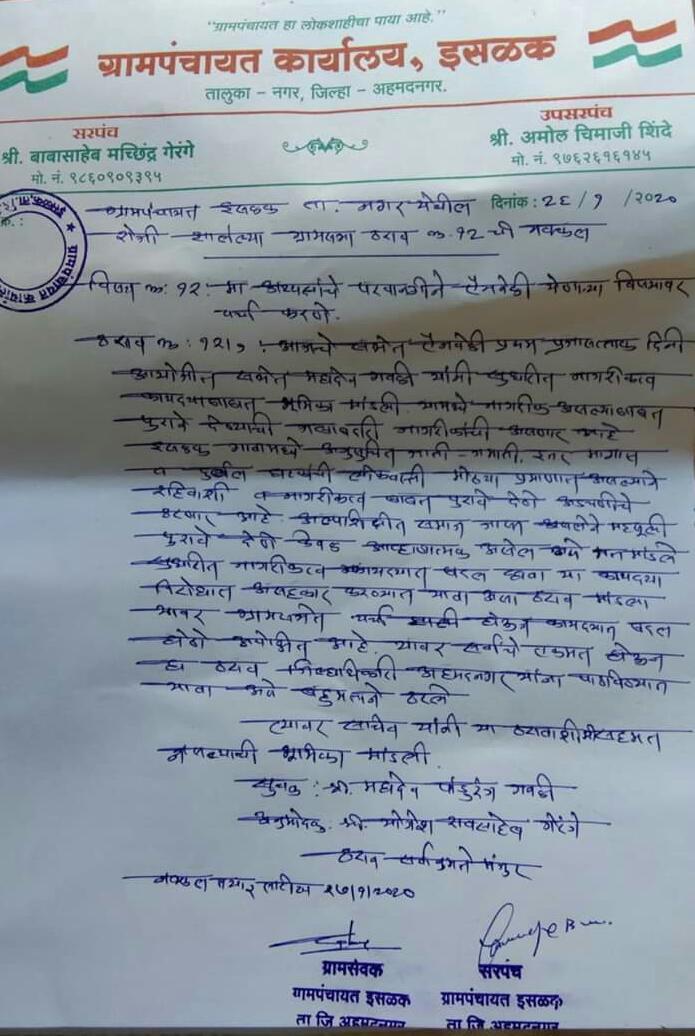 "ग्रामपंचायत हा लोकशाहीचा पाया आहे."
ग्रामपंचायत कार्यालय, इसळक
तालुका - नगर, जिल्हा - अहमदनगर.
सरपंच
श्री. बाबासाहेब मच्छिंद्र गेरंगे
मो. नं. ९८६०९०९३९५
उपसरपंच
श्री. अमोल चिमाजी शिंदे
मो. नं. ९७६२६१६१४५
ग्रामपंचायत इसळक ता. नगर येथील दिनांक : २६ / १ / २०२०
रोजी झालेल्या ग्रामसभा ठराव क्र. १२ ची नक्कल
विषय क्र: १२: मा अध्यक्षांचे परवानगीने ऐनवेळी येणाऱ्या विषयावर
चर्चा करणे.
ठराव क्र: १२/१ : आजचे सभेत ऐनवेळी प्रथम प्रजासत्ताक दिनी
आयोजीत सभेत महादेव गवळी यांनी सुधारीत नागरीकत्व
कायद्याबाबत भूमिका मांडली. यामध्ये नागरीक असल्याबाबत
पुरावे देण्याची जबाबदारी नागरीकांची असणार आहे
इसळक गावामध्ये अनुसुचित जाती-जमाती, इतर मागास
व दुर्बल घटकांची लोकवस्ती मोठ्या प्रमाणात असल्याने
रहिवाशी व नागरीकत्व बाबत पुरावे देणे अडचणीचे
ठरणार आहे. अल्पशिक्षीत समाज जास्त असलेने महसूली
पुरावे देणे केवळ आव्हानात्मक असेल असे मत मांडले
सुधारीत नागरीकत्व कायद्यात बदल व्हावा या कायद्या
विरोधात असहकार करण्यात यावा असा ठराव मांडला
यावर ग्रामसभेत चर्चा होऊन कायद्यात बदल
होणे अपेक्षित आहे. यावर सर्वांचे एकमत होऊन
हा ठराव जिल्हाधिकारी अहमदनगर यांना पाठविण्यात
यावा असे बहुमताने ठरले
त्यावर सचिव यांनी या ठरावाशी मी सहमत
नसल्याची भूमिका मांडली.
सुचक : श्री. महादेव पांडुरंग गवळी
अनुमोदक: श्री. योगेश रावसाहेब गेरंगे
ठराव सर्वानुमते मंजुर
नक्कल तयार तारीख २७/१/२०२०
ग्रामसेवक
ग्रामपंचायत इसळक
ता जि अहमदनगर
सरपंच
ग्रामपंचायत इसळक
ता जि अहमदनगर